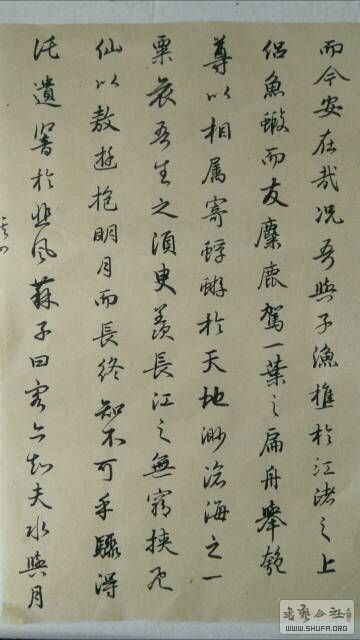 而今安在哉况吾與子漁樵於江渚之上
侣魚蝦而友麋鹿駕一葉之扁舟舉匏
尊以相属寄蜉蝣於天地渺滄海之一
粟哀吾生之須臾羨長江之無窮挟飛
仙以敖遊抱明月而長終知不可乎驟得
託遺響於悲風蘇子曰客亦知夫水與月
书艺公社
WWW.SHUFA.ORG